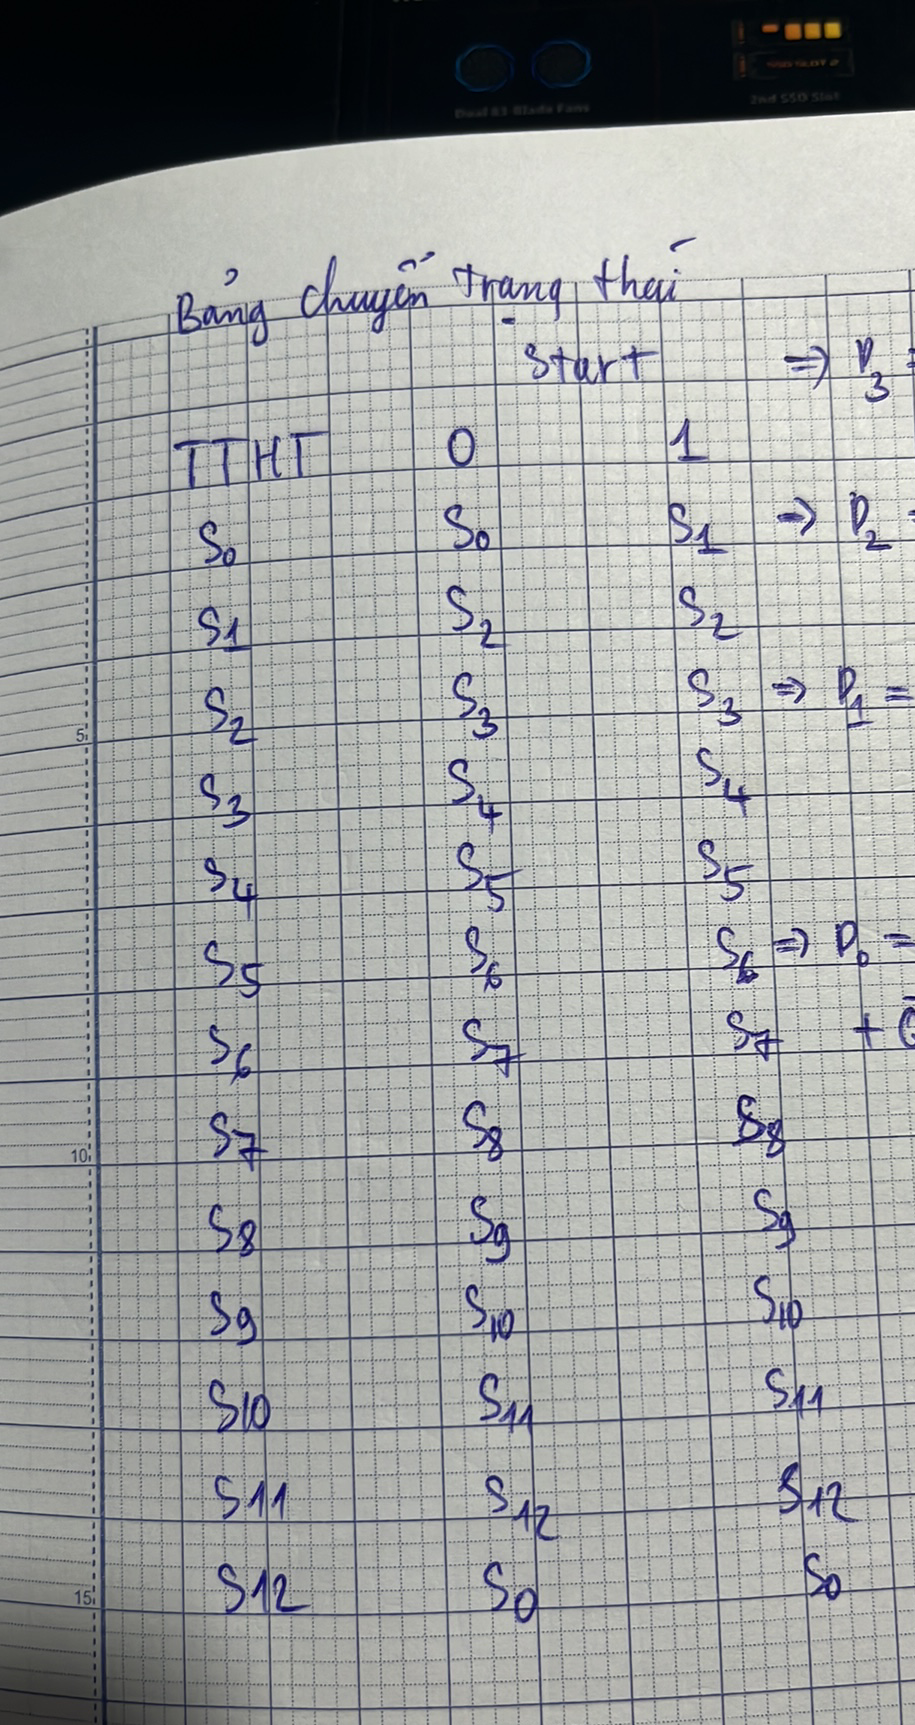 Dual 83 Blade Fans
SSD SLOT 2
2nd SSD Slot
Bảng chuyển trạng thái
Start ⇒ D₃ =
TTHT 0 1
S₀ S₀ S₁ ⇒ D₂ =
S₁ S₂ S₂
S₂ S₃ S₃ ⇒ D₁ =
5
S₃ S₄ S₄
S₄ S₅ S₅
S₅ S₆ S₆ ⇒ D₀ =
S₆ S₇ S₇ +
S₇ S₈ S₈
10
S₈ S₉ S₉
S₉ S₁₀ S₁₀
S10 S₁₁ S₁₁
S11 S₁₂ S₁₂
S12 S₀ S₀
15